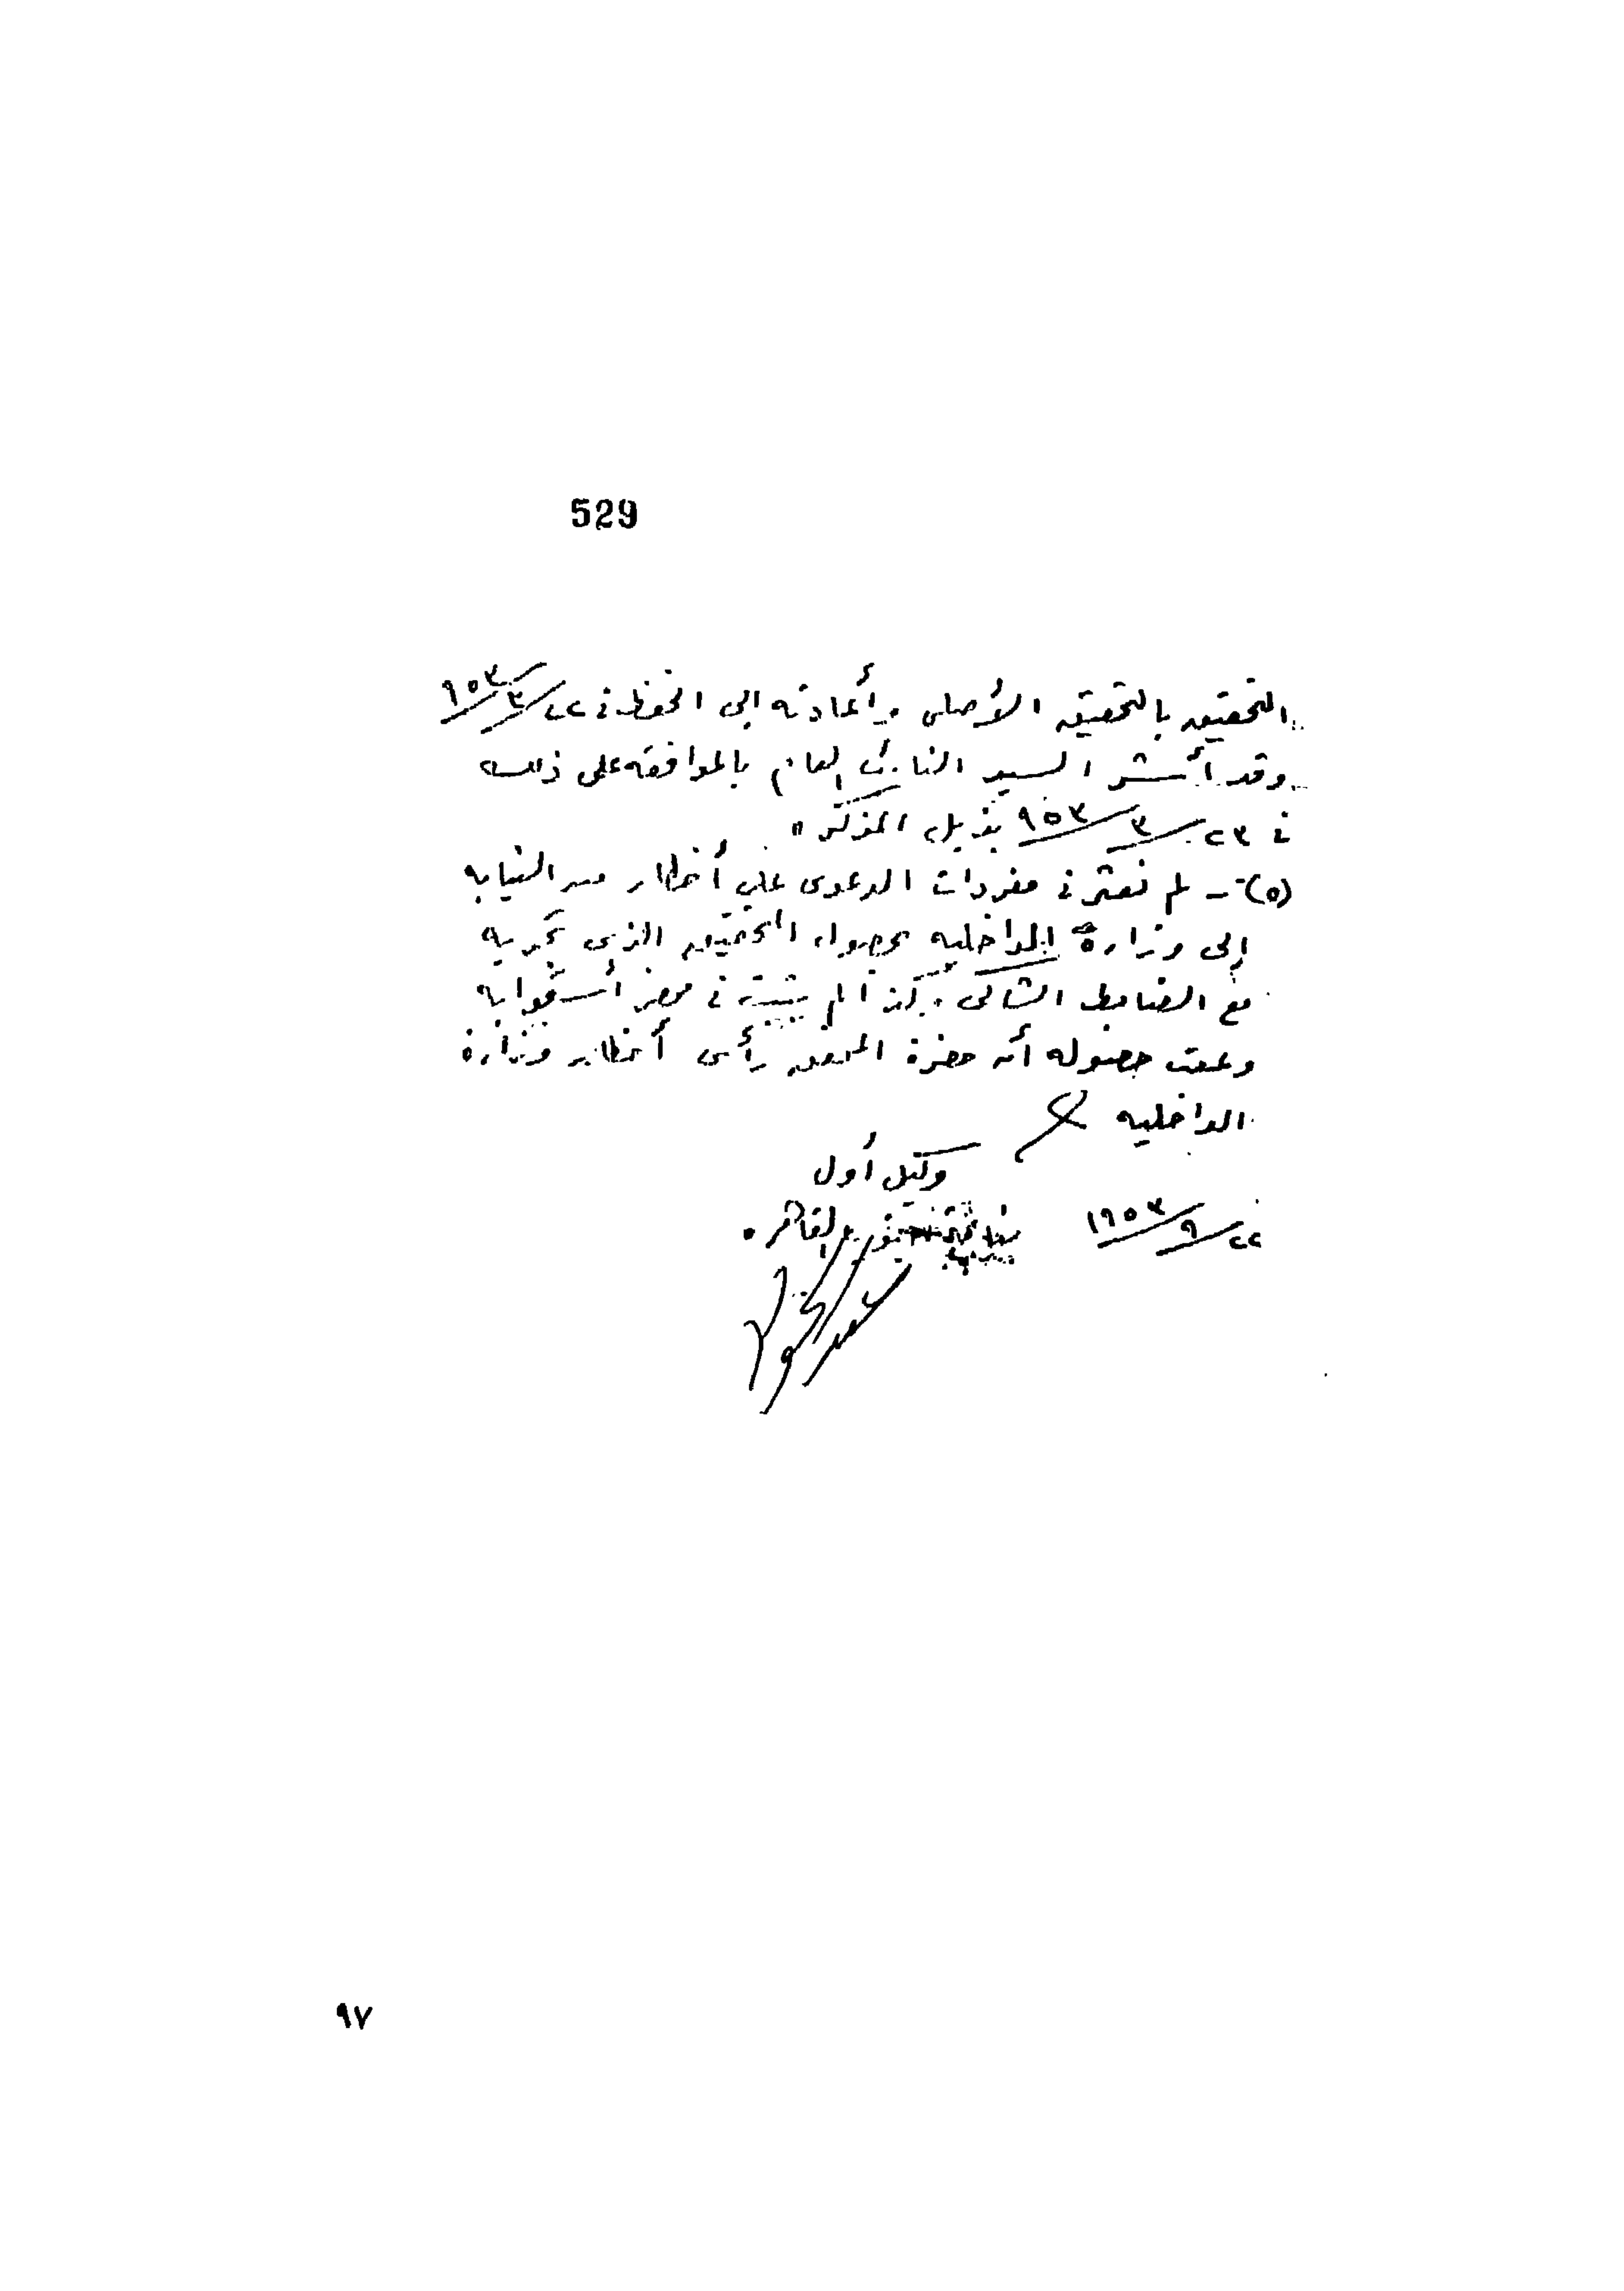 529
التحقيق بالتحقيق الأصلى وأعادته إلى الحفظ فى ٢٢/٣/٩٥٣
وقد أشر السيد النائب العام بالموافقه على ذلك
فى ٢٣/٣/٩٥٣ بذيل المذكره
(٥) - لم نعثر فى مفردات الدعوى على أخطار من النيابه
إلى وزارة الداخليه بحصول التحقيق الذى تجريه
مع الضابط الشاكى وكذا لم يثبت فى محضر أستجوابه
وعقب حضوله أن حضرة المحقق رأى أخطار وزارة
الداخليه
وكيل أول
٢٢/٩/١٩٥٣ القاهره
٩٧